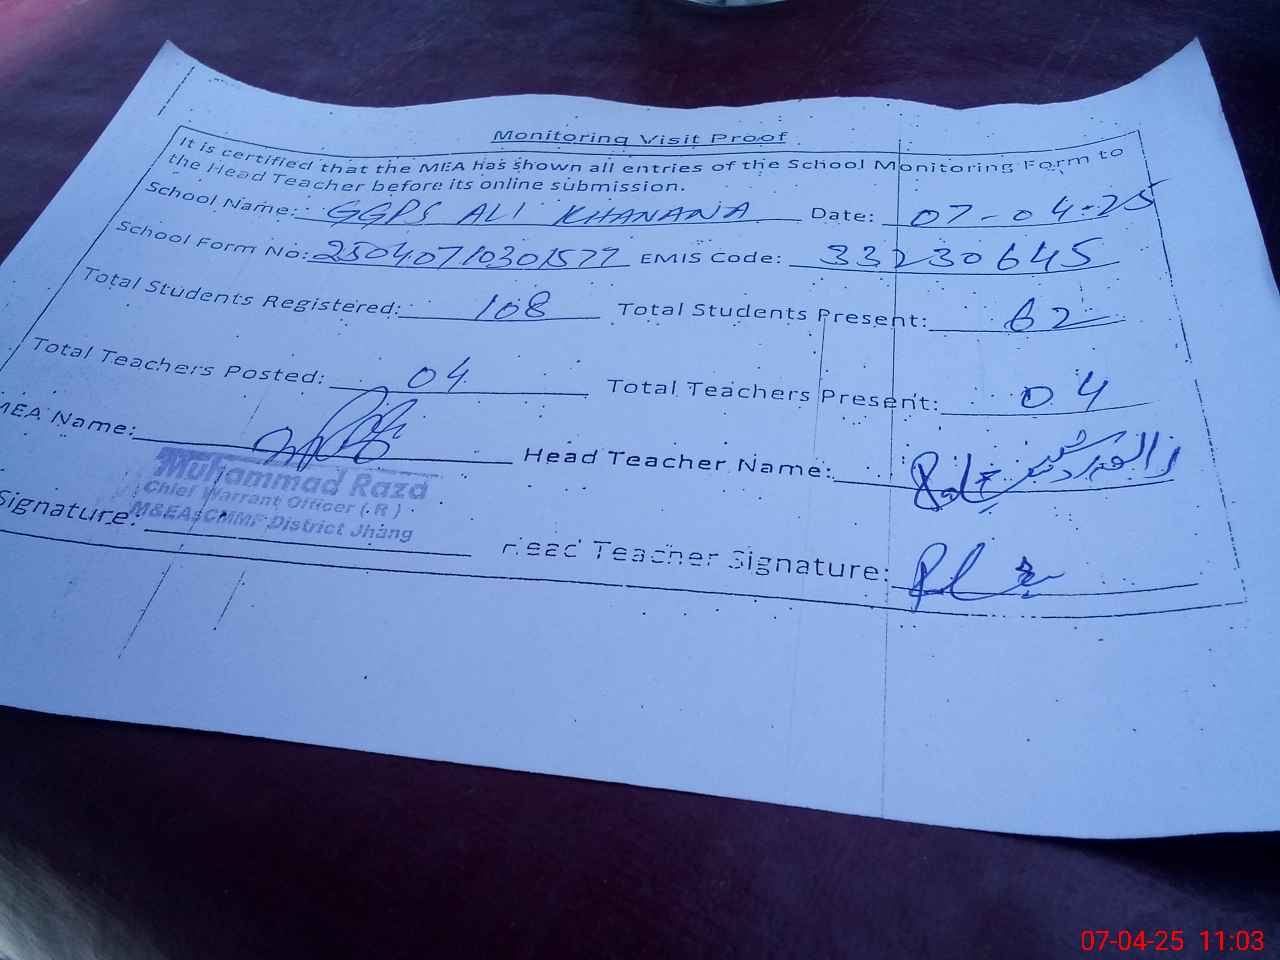 Monitoring Visit Proof
It is certified that the MEA has shown all entries of the School Monitoring Form to
the Head Teacher before its online submission.
School Name: GGPS ALI KHANANA Date: 07-04-25
School Form No: 25040710301577 EMIS Code: 33230645
Total Students Registered: 108 Total Students Present: 62
Total Teachers Posted: 04 Total Teachers Present: 04
MEA Name: Head Teacher Name:
Muhammad Raza
Chief Warrant Officer (R)
M&EAsCMMF District Jhang
Signature: Head Teacher Signature:
07-04-25 11:03